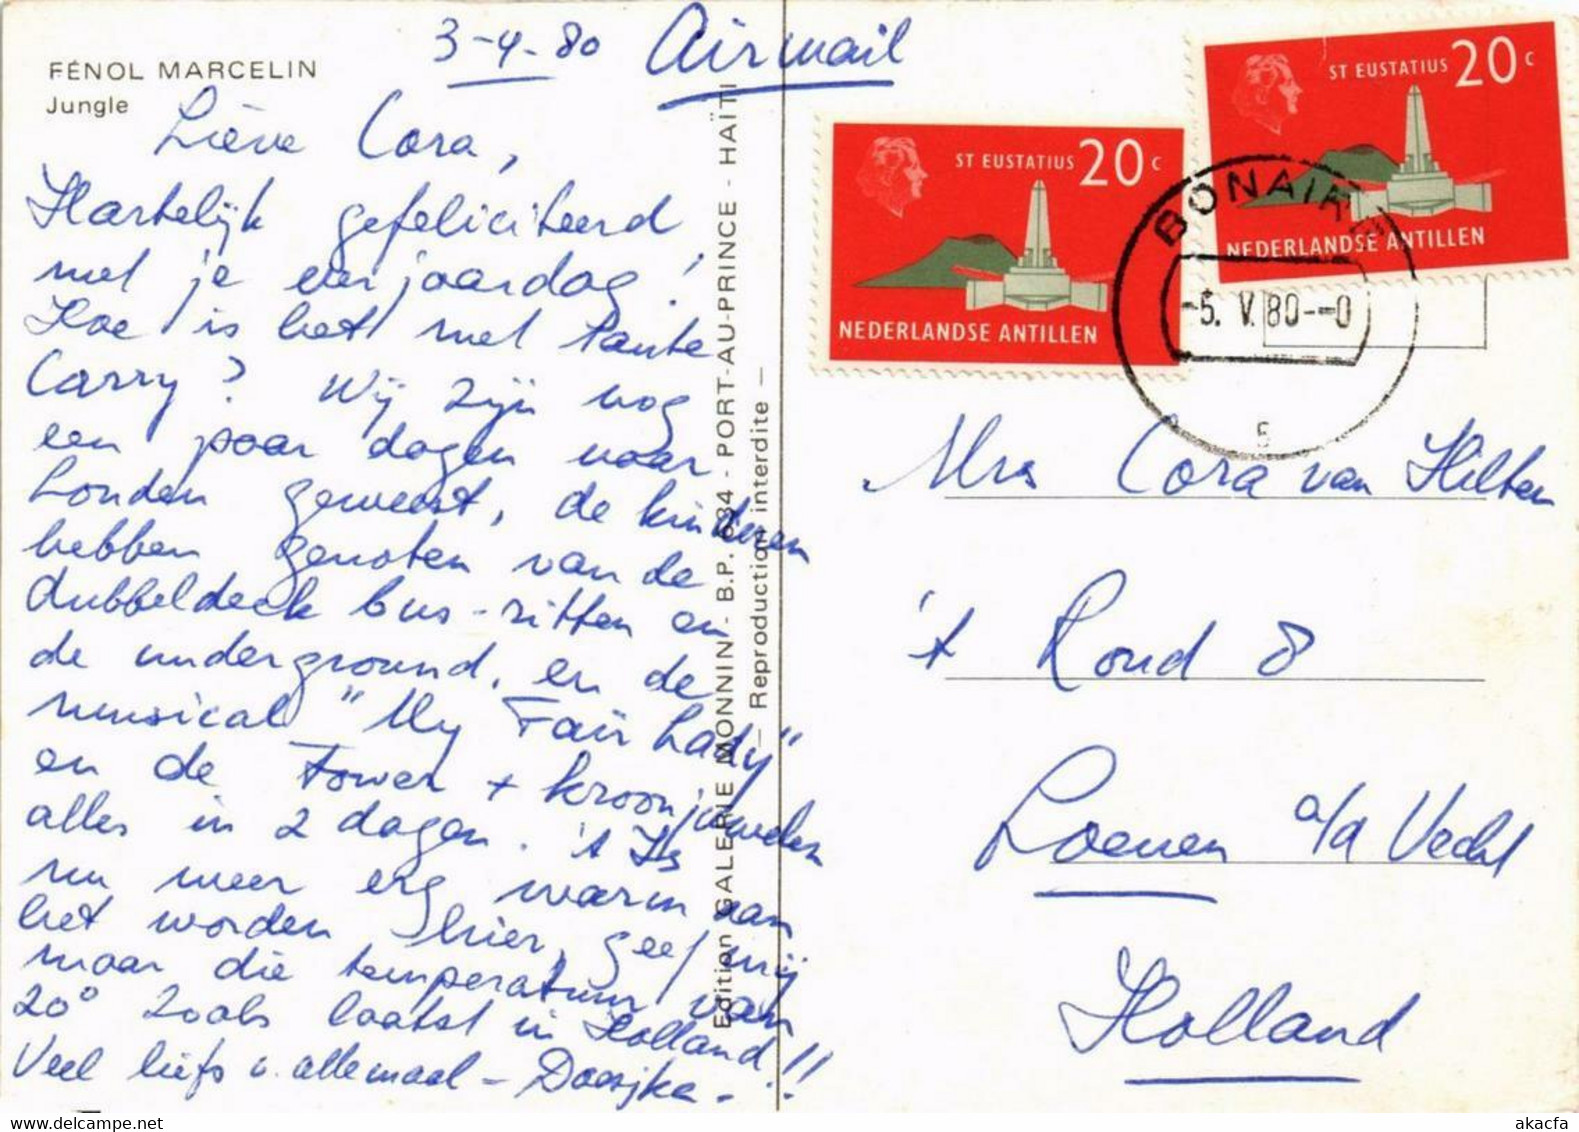 FÉNOL MARCELIN
Jungle
3-4-80 Airmail
Lieve Cora,
Hartelijk gefeliciteerd
met je verjaardag!
Hoe is het met tante
Carry? Wij zijn nog
een paar dagen naar
Londen geweest, de kinderen
hebben genoten van de
dubbeldeck bus-ritten en
de underground, en de
musical "My Fair Lady"
en de Tower + kroonjuwelen
alles in 2 dagen. 't Is
nu weer erg warm aan
het worden hier, geef mij
maar die temperatuur van
20° zoals laatst in Holland!!
Veel liefs v. allemaal -
Edition GALERIE MONNIN - B.P. 684 - PORT-AU-PRINCE - HAÏTI
— Reproduction interdite —
ST EUSTATIUS 20 c
NEDERLANDSE ANTILLEN
ST EUSTATIUS 20 c
NEDERLANDSE ANTILLEN
BONAIRE
-5. V. 80--0
5
Mrs Cora van Hilten
't Rond 8
Loenen a/d Vecht
Holland
akacfa